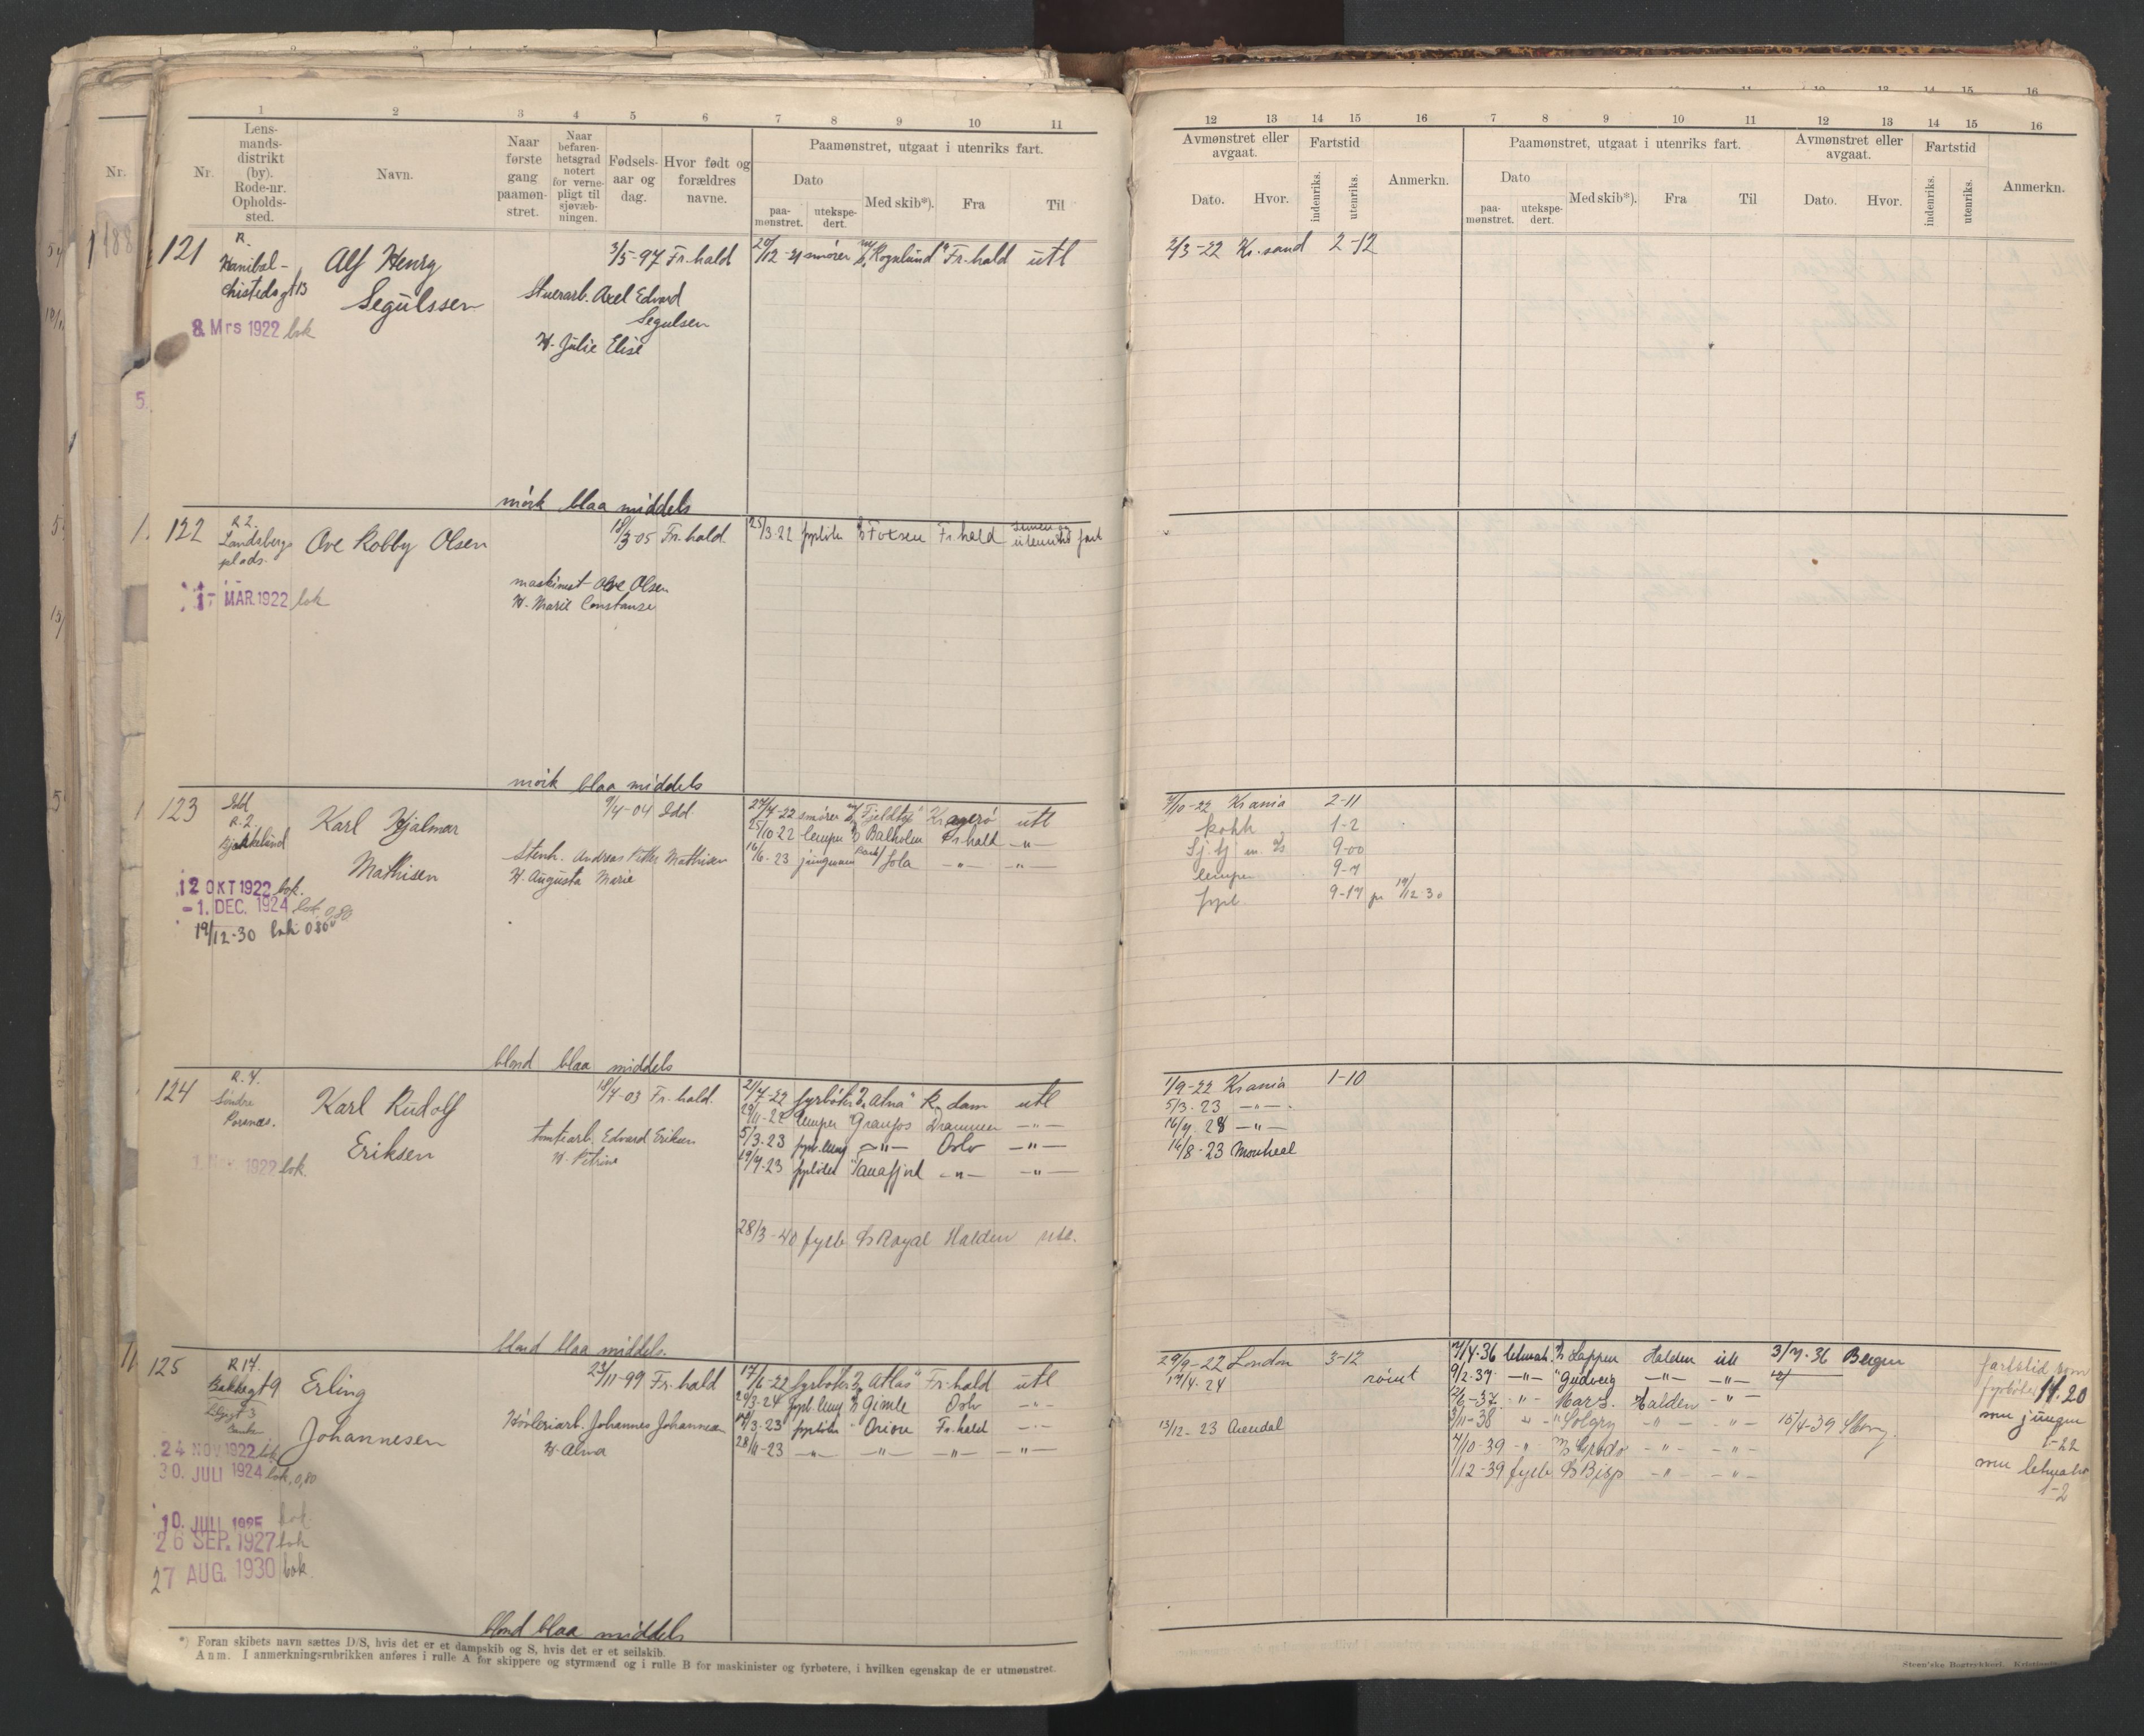 1 2 3 4 5 6 7 8 9 10 11
Nr.
Nr.
Lens-
mands-
distrikt
(by).
Rode-nr.
Opholds-
sted.
Navn.
Naar
første
gang
paamøn-
stret.
Naar
befaren-
hetsgrad
notert
for verne-
pligt til
sjøvæb-
ningen.
Fødsels-
aar og
dag.
Hvor født og
forældres
navne.
Paamønstret, utgaat i utenriks fart.
Dato
paa-
mønstret.
utekspe-
dert.
Med skib*).
Fra
Til
121
R.
Alf Henry
Segulssen
3/5-97 Fr.hald
20/12-21 smører Fr.hald utl
Stuerarb. Axel Edvard
Segulsen
H. Julie Elise
8 Mrs 1922 bok
mørk blaa middels
122
R 2.
Landsberg
plads.
Ove Robby Olsen
18/3-05 Fr.hald.
25/3-22 Fr.hald
maskinist Olsen
H. Marie Constanse
17 MAR 1922 bok
mørk blaa middels
123
Idd
R. 2.
Karl Hjalmar
Mathisen
9/4-04 Idd
27/4-22 smører Kragerø utl
25/10-22 lemper Balholm Fr.hald -"-
16/6-23 jungmann Sola -"- -"-
Stenh. Andreas Mathisen
H. Augusta Marie
12 OKT 1922 bok.
-1. DEC. 1924 bok 0,80
19/12-30 bok 0 80
blond blaa middels
124
R. 4.
Søndre
Karl Rudolf
Eriksen
18/7-03 Fr.hald.
21/7-22 fyrbøter "Atna" R.dam utl
29/11-22 lemper Granfos Drammen -"-
5/3-23 -"- Oslo -"-
19/7-23 Tanafjord -"- -"-
tomtearb. Edvard Eriksen
H. Petrine
1922 bok.
28/3-40 fyrb D/s Royal Halden utl.
blond blaa middels.
125
R 14.
Erling
Johannesen
23/11-99 Fr.hald
17/6-22 fyrbøter "Atlas" Fr.hald utl
29/3-24 Gimle Oslo -"-
3-23 Orion Fr.hald -"-
28/11-23 -"- -"- -"- -"-
Høvleriarb. Johannes Johannesen
H. Alma
24 NOV 1922 bok
30. JULI 1924 bok, 0,80
10. JULI 1925 bok
26 SEP. 1927 bok
27 AUG. 1930 bok.
blond blaa middels
*) Foran skibets navn sættes D/S, hvis det er et dampskib og S, hvis det er et seilskib.
Anm. I anmerkningsrubrikken anføres i rulle A for skippere og styrmænd og i rulle B for maskinister og fyrbøtere, i hvilken egenskap de er utmønstret.
12 13 14 15 16 7 8 9 10 11 12 13 14 15 16
Avmønstret eller
avgaat.
Fartstid
Dato.
Hvor.
indenriks.
utenriks.
Anmerkn.
Paamønstret, utgaat i utenriks fart.
Dato
paa-
mønstret.
utekspe-
dert.
Med skib*).
Fra
Til
Avmønstret eller
avgaat.
Fartstid
Dato.
Hvor.
indenriks.
utenriks.
Anmerkn.
2/3-22 Kr.sand 2-12
7/10-22 Krania 2-11
kokk 1-2
9-00
lemper 9-7
fyrb. 9-17 pr 19/12-30
1/9-22 Krania 1-10
5/3-23 -"-
-"-
16/8-23 Montreal
29/9-22 London 3-12
19/4-24 rømt
13/12-23 Arendal
letmatr. Lappen Halden utl 3/7-36 Bergen
"Gudveig -"- -"-
Mars. Halden -"-
Solgry -"- -"- 15/4-39
4/10-39 -"- -"- -"-
1/12-39 fyrb D/s Bisp -"- -"-
fartstid som
fyrbøter 14.20
som jungm
1-22
som letmatr
1-2